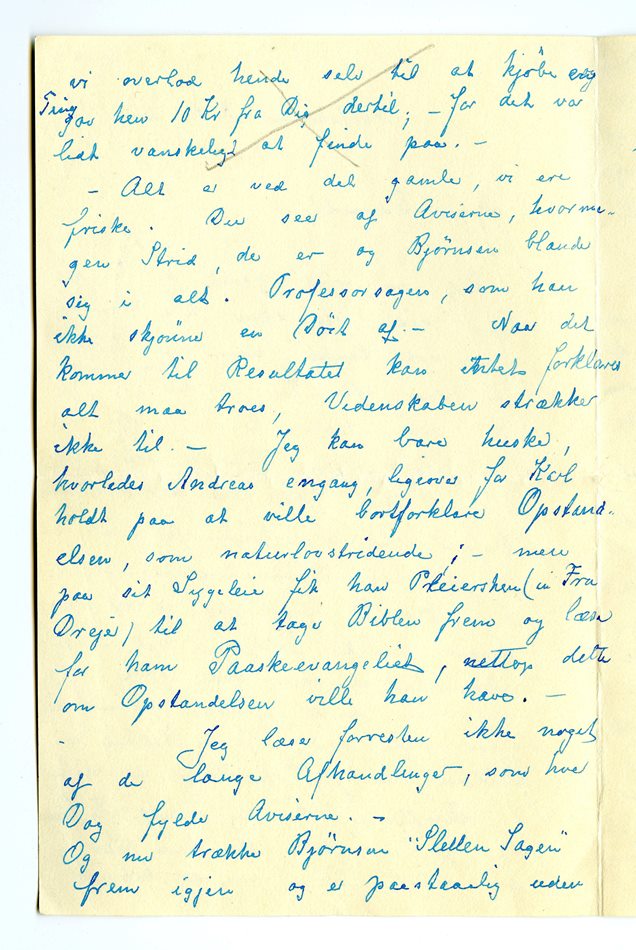 vi overlod hende selv til at kjøbe
Ting
gav hen 10 Kr fra Dig dertil; – for det var
lidt vanskeligt at finde paa. –
– Alt er ved det gamle, vi ere
friske. Du seer af Aviserne, hvorme-
gen Strid, de er og Bjørnson blande
sig i alt. Professorsagen, som han
ikke skjønne en Døit af. – Naar det
kommer til Resultatet kan Intet forklares
alt maa troes, Videnskaben strækker
ikke til. – Jeg kan bare huske,
hvorledes Andreas engang, ligeover for Karl
holdt paa at ville bortforklare Opstand-
elsen, som naturlovstridende; – men
paa sit Sygeleie fik han Pleiersken (en Fru
Dreje) til at tage Biblen frem og læse
for ham Paaskeevangeliet, nettop dette
om Opstandelsen ville han have. –
– Jeg læser forresten ikke noget
af de lange Afhandlinger, som hver
Dag fylde Aviserne. –
Og nu trække Bjørnson "Sletten Sagen"
frem igjen og er paastaaelig uden